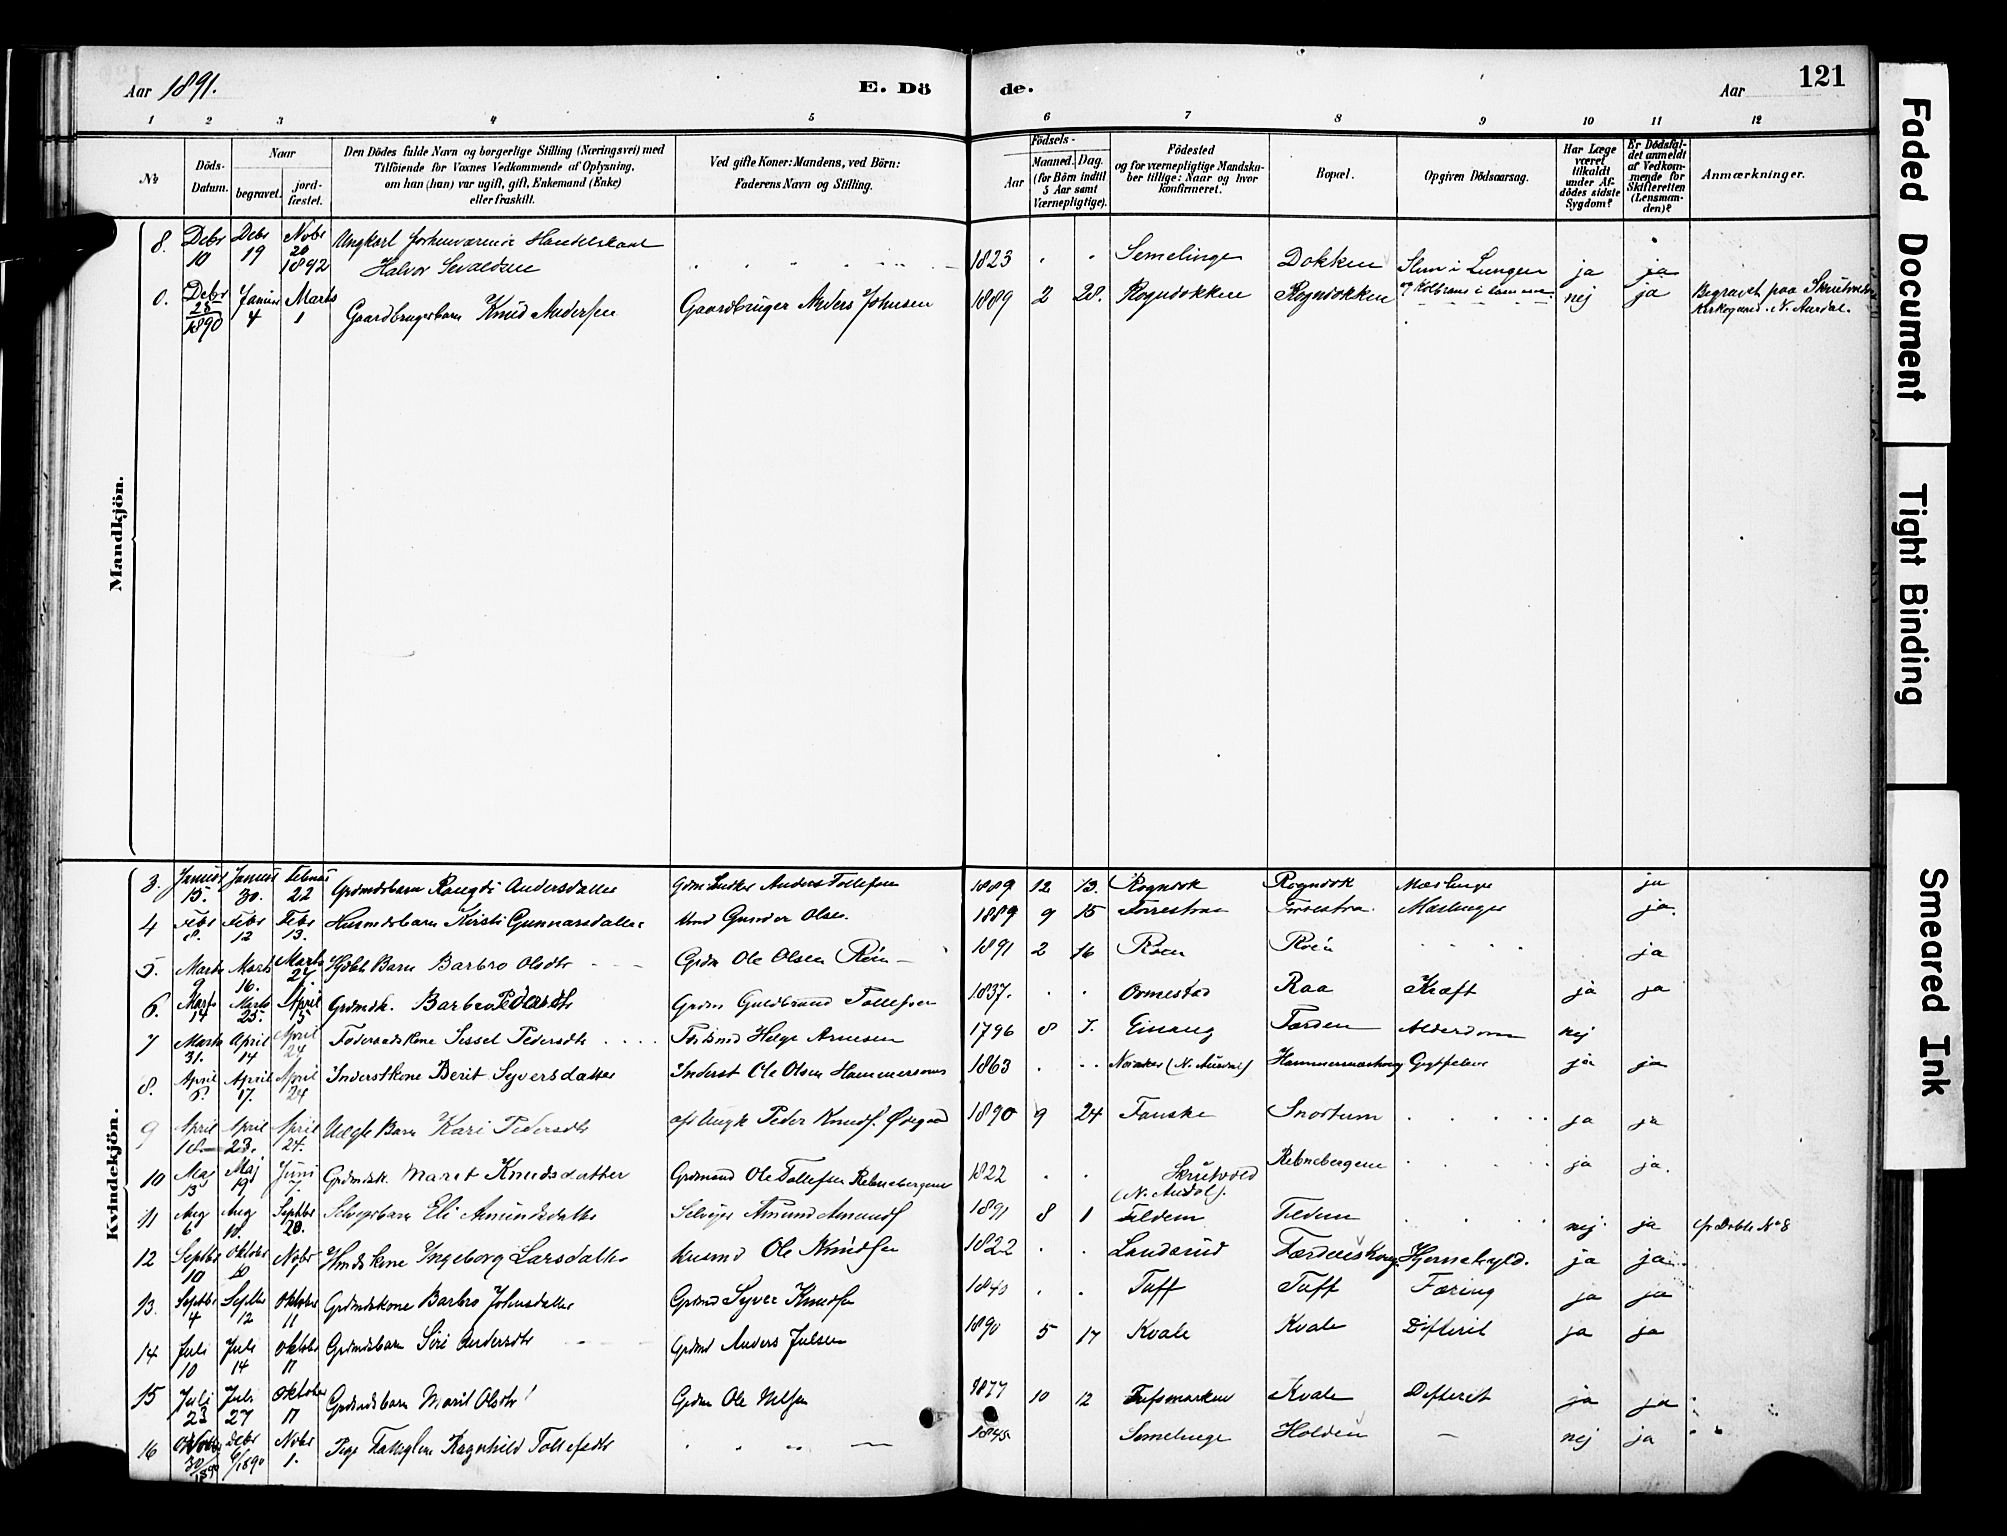 Aar 1891.
E. Döde.
Aar
121
1 2 3 4 5 6 7 8 9 10 11 12
No
Döds-Datum.
Naar
begravet.
jord-fæstet.
Den Dödes fulde Navn og borgerlige Stilling (Næringsvei) med
Tilföiende for Voxnes Vedkommende af Oplysning,
om han (hun) var ugift, gift, Enkemand (Enke)
eller fraskilt.
Ved gifte Koner: Mandens, ved Börn:
Faderens Navn og Stilling.
Födsels-
Aar
Maaned. Dag.
(for Börn indtil
5 Aar samt
Værnepligtige).
Födested
og for værnepligtige Mandska-
ber tillige: Naar og hvor
konfirmeret.
Bopæl.
Opgiven Dödsaarsag.
Har Læge
været
tilkaldt
under Af-
dödes sidste
Sygdom?
Er Dödsfal-
det anmeldt
af Vedkom-
mende for
Skifteretten
(Lensman-
den)?
Anmærkninger.
Mandkjön.
8. Debr 10 Debr 19 Novbr 20 1892 Ungkarl forhenværende Handelskarl Halvor Sevaldsen 1823 Semelinge Dokken Slim i Lungen ja ja
0. Debr 28 1890 Januar 4 Marts 1 Gaardbrugerbarn Knud Andersen Gaardbruger Anders Johnsen 1889 2 28. Rogndokken Rogndokken nej ja Begravet paa Skrutvold Kirkegaard. N. Aurdal.
Kvindekjön.
3. Januar 15. Januar 30. Februar 22 Grdmdsbarn Rangdi Andersdatter Anders Tollefsen 1889 12 13. Rogndok Rogndok Mæslinge ja
4 Febr 8. Febr 12 Febr 13. Husmdsbarn Kirsti Gunnarsdatter Hmd Gunder Olsen. 1889 9 15 Forrestraa Forrestraa Mæslinger ja.
5. Marts 9 Marts 16. Marts 27 Barn Barbro Olsdtr Grdm Ole Olsen Röin 1891 2 16 Röen Röen ja
6. Marts 14 Marts 25. April 5 Grdmdsk. Barbro Pedersdtr Grdm Guldbrand Tollefsen 1837. Ormestad Raa Kræft ja ja
7 Marts 31. April 14 April 24 Föderaadskone Sissel Pedersdtr Helge Arnesen 1796 8 7. Eisang Færden Alderdom nej
8. April 6. April 17. April 24 Inderstkone Berit Syversdatter Inderst Ole Olsen Hammersmo 1863 (N. Aurdal) ja ja
9 April 18 April 23. April 24. Uægte Barn Kari Pedersdtr af Ungk Peder Knudsf. Övgaard 1890 9 24 Fauske Snortum ja ja
10 Maj 13 Maj 19 Juni 7. Grdmdsk. Marit Knudsdatter Grdmand Ole Tollefsen Rebnebergene 1822 Skrutvold (N. Aurdal). Rebnebergene ja ja.
11 Aug 6 Aug 10. Septbr 20. Selvejerbarn Eli Amundsdatter Selvejer Amund Amunds 1891 8 1 Fildem Fildem nej. ja cfr Döbte No 8
12 Septbr 10 Oktober Novbr Hmdskone Ingeborg Larsdatter Husmd Ole Knudsen 1822 Landsrud Hjernebyld. ja ja
13. Septbr 4 Septbr 12 Oktober 11 Grdmdskone Barbro Johnsdatter Grdmd Syver Knudsen 1840 Tuff Tuff Tæring ja ja
14 Juli 10 Juli 14 Oktober 17 Grdmdsbarn Siri Andersdtr Grdmd Anders Julsen 1890 5 17 Kvale Kvale Difterit ja ja
15 Juli 23 Juli 27 Oktober 17 Grdmdsbarn Marit Olsdtr Grdm Ole Nilsen 1877 10 12 Tufsmarken Kvale Difterit ja ja
16 30/1890 Debr 6/1890 Novbr 1. Pige Fattiglem Ragnhild Tollefsdtr 1845 Semelenge Holden nej ja
Faded Document
Tight Binding
Smeared Ink